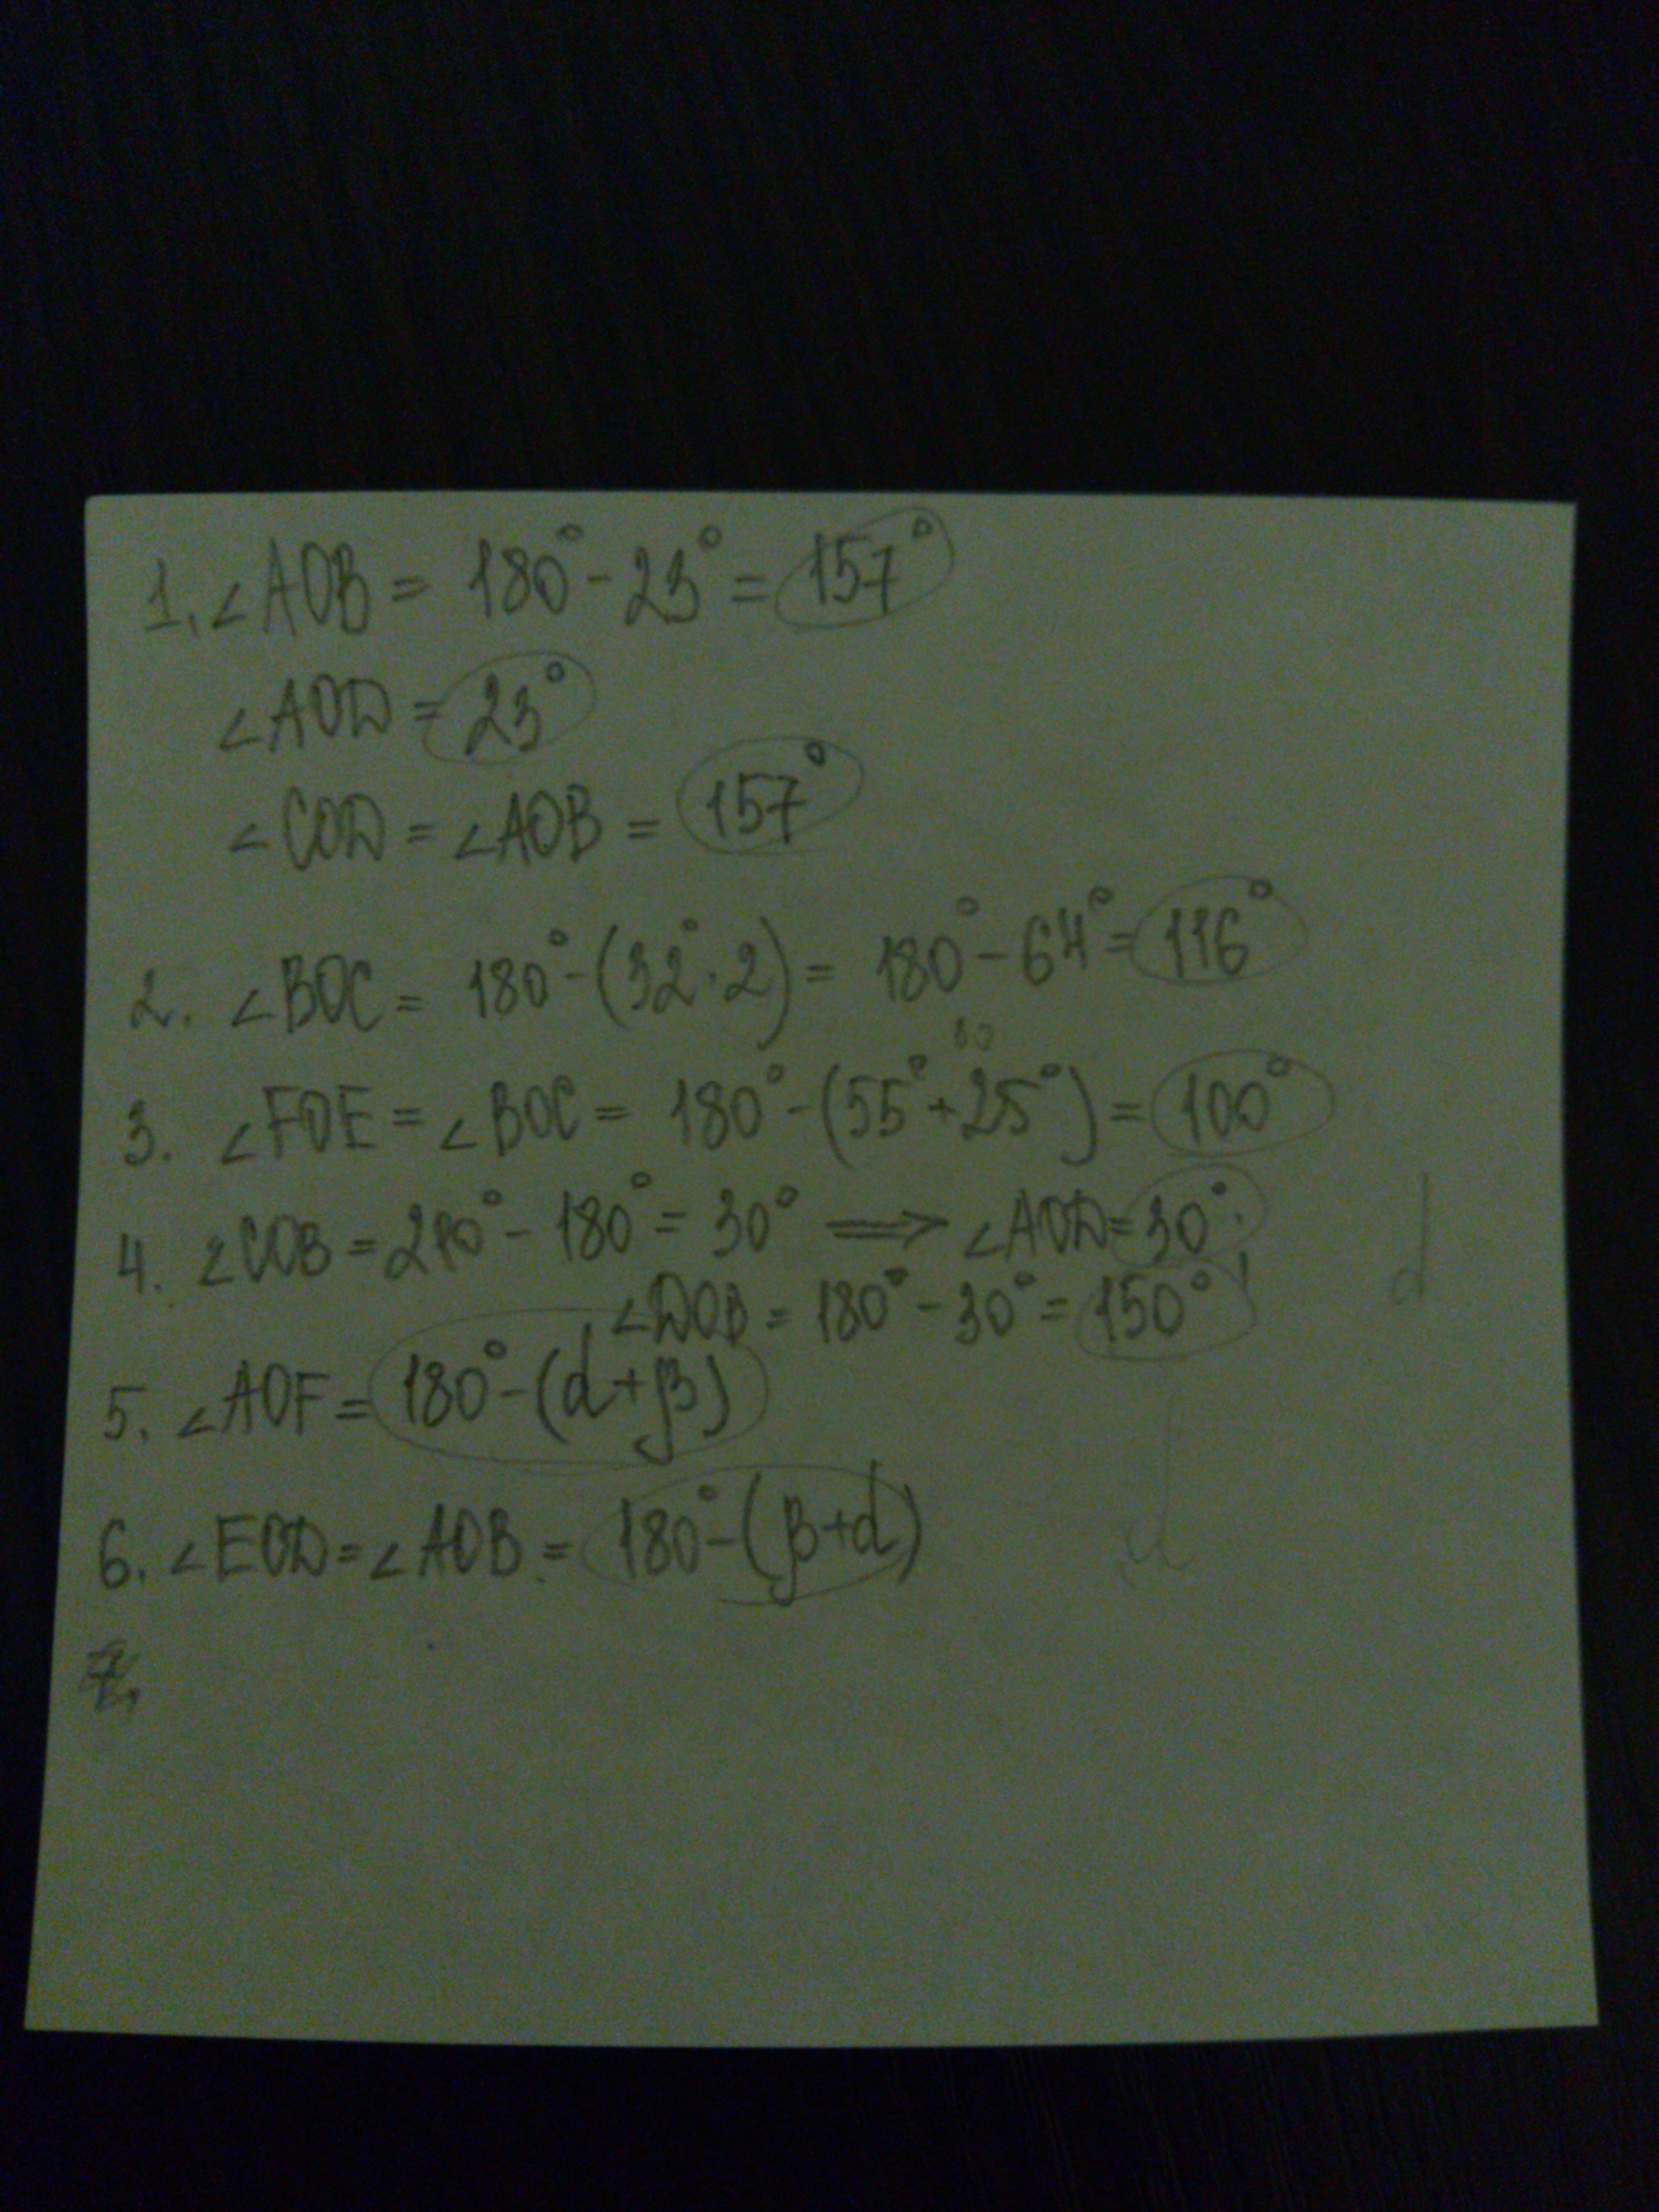 1. ∠AOB = 180° - 23° = 157°
∠AOD = 23°
∠COD = ∠AOB = 157°
2. ∠BOC = 180° - (32° · 2) = 180° - 64° = 116°
80
3. ∠FOE = ∠BOC = 180° - (55° + 25°) = 100°
4. ∠COB = 210° - 180° = 30° ⟹ ∠AOD = 30°;
∠DOB = 180° - 30° = 150°
d
5. ∠AOF = 180° - (d + β)
6. ∠EOD = ∠AOB = 180° - (β + d)
d